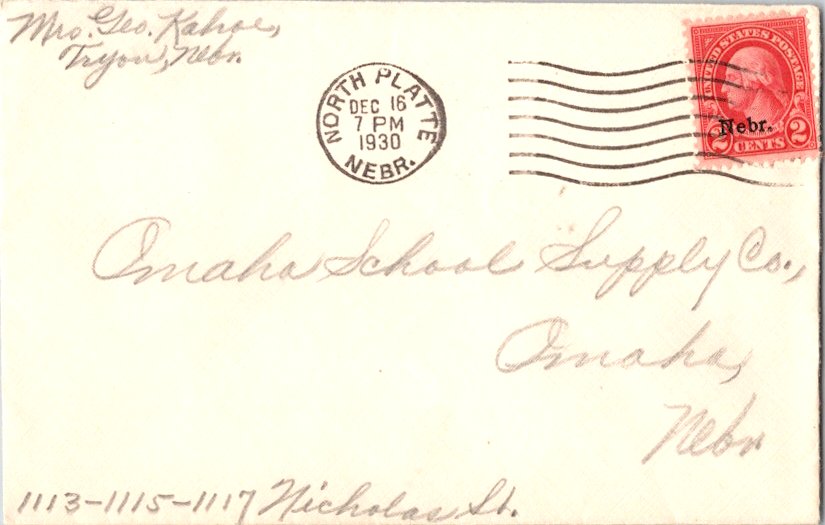 Mrs. Geo. Kahoe,
Tryon, Nebr.
NORTH PLATTE
DEC 16
7 PM
1930
NEBR.
UNITED STATES POSTAGE
Nebr.
2 CENTS 2
Omaha School Supply Co.,
Omaha,
Nebr
1113-1115-1117 Nicholas St.